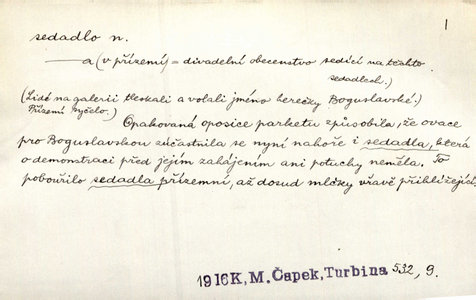 1
sedadlo n.
— a (v přízemí) = divadelní obecenstvo sedící na těchto
sedadlech.)
(Lidé na galerii tleskali a volali jméno herečky Boguslavské.)
Přízemí syčelo.)
Opakovaná oposice parketu způsobila, že ovace
pro Boguslavskou zúčastnila se nyní nahoře i sedadla, která
o demonstraci před jejím zahájením ani potuchy neměla. To
pobouřilo sedadla přízemní, až dosud mlčky vřavě přihlížející.
1916 K, M. Čapek, Turbina 532, 9.